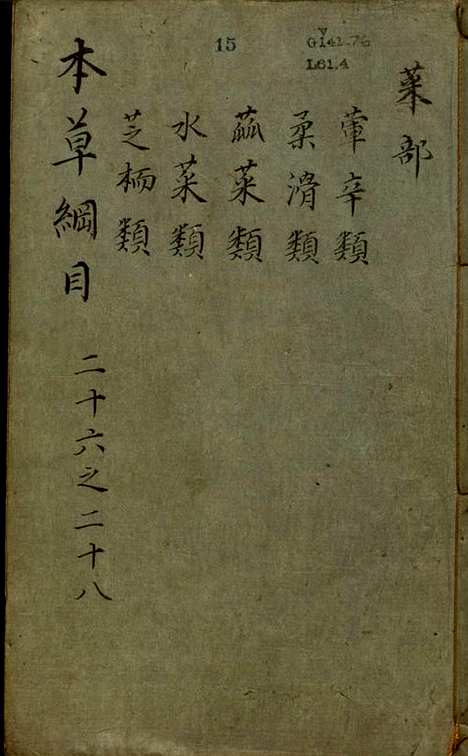 15
G142.76
L61.4
菜部
葷辛類
柔滑類
蓏菜類
水菜類
芝栭類
本草綱目
二十六之二十八